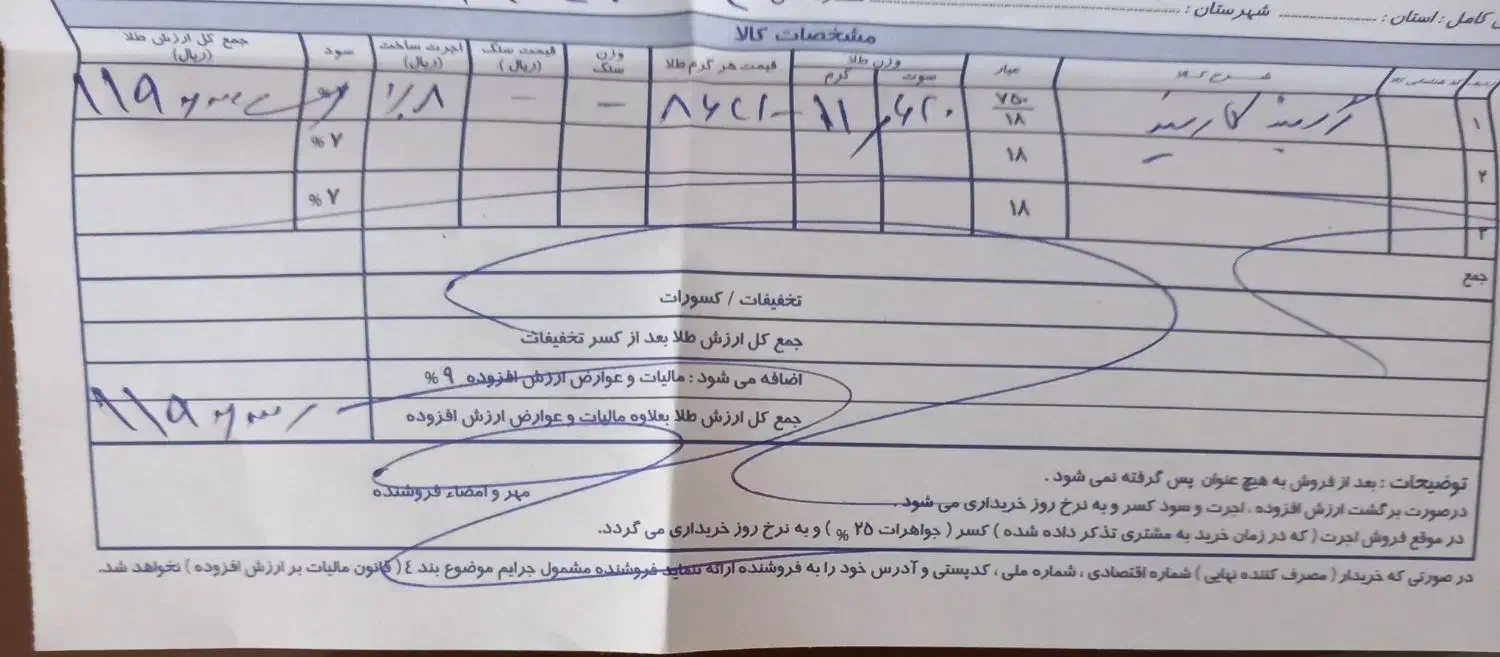 کامل : استان : .................... شهرستان : ....................
مشخصات کالا
شرح کالا عیار وزن طلا قیمت هر گرم طلا وزن سنگ قیمت سنگ (ریال) اجرت ساخت (ریال) سود جمع کل ارزش طلا (ریال)
سوت گرم
۱ ۷۵۰ ۱۸ ۶۲۰ ۱۱ — — ٪۸ ۱۱۹
۲ ۱۸ ۷ %
۳ ۱۸ ۷ %
جمع
تخفیفات / کسورات
جمع کل ارزش طلا بعد از کسر تخفیفات
اضافه می شود : مالیات و عوارض ارزش افزوده ۹ %
جمع کل ارزش طلا بعلاوه مالیات و عوارض ارزش افزوده ۱۱۹
توضیحات : بعد از فروش به هیچ عنوان پس گرفته نمی شود .
درصورت برگشت ارزش افزوده ، اجرت و سود کسر و به نرخ روز خریداری می شود .
مهر و امضاء فروشنده
در موقع فروش اجرت ( که در زمان خرید به مشتری تذکر داده شده ) کسر ( جواهرات ۲۵ % ) و به نرخ روز خریداری می گردد.
در صورتی که خریدار ( مصرف کننده نهایی ) شماره اقتصادی ، شماره ملی ، کدپستی و آدرس خود را به فروشنده ارائه ننماید فروشنده مشمول جرایم موضوع بند ٤ ( قانون مالیات بر ارزش افزوده ) نخواهد شد.